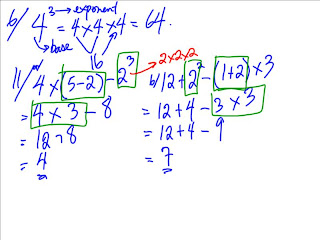 b/ 4³ → exponent = 4 × 4 × 4 = 64.
→ base 16
11/ a/ 4 × (5-2) - 2³ → 2×2×2
= 4 × 3 - 8
= 12 - 8
= 4
b/ 12 + 2² - (1+2) × 3
= 12 + 4 - 3 × 3
= 12 + 4 - 9
= 7